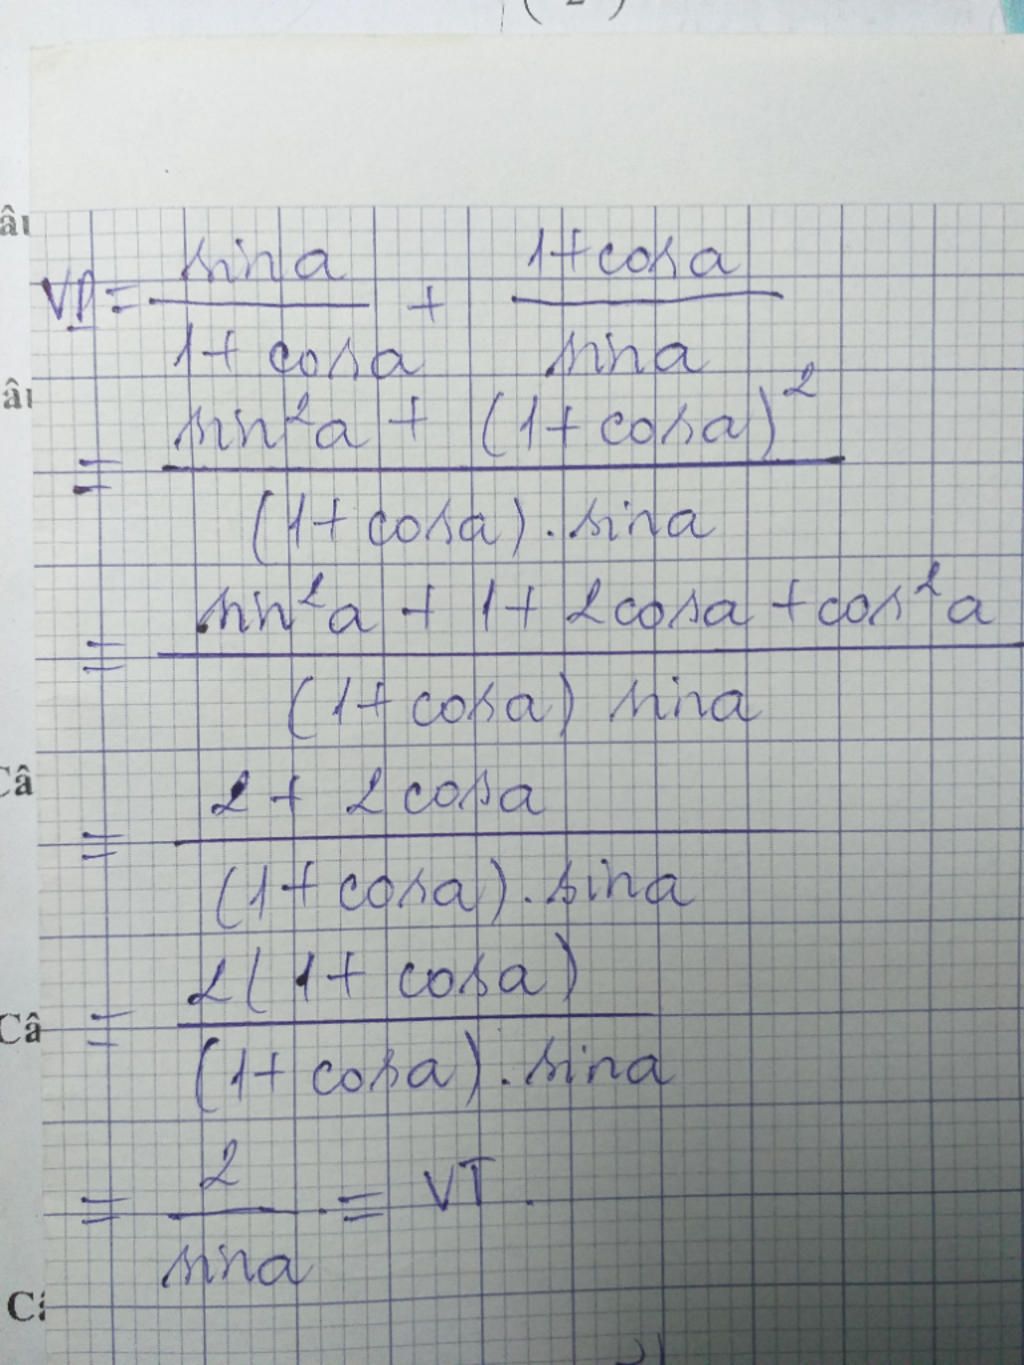 VP = sina / (1 + cosa) + (1 + cosa) / sina
= (sin²a + (1 + cosa)²) / ((1 + cosa) . sina)
= (sin²a + 1 + 2cosa + cos²a) / ((1 + cosa) sina)
= (2 + 2cosa) / ((1 + cosa) . sina)
= 2(1 + cosa) / ((1 + cosa) . sina)
= 2 / sina . = VT .